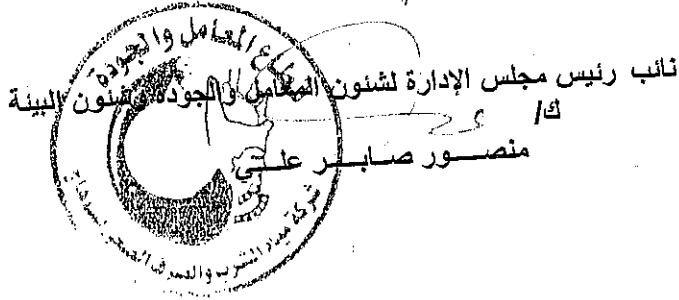 نائب رئيس مجلس الإدارة لشئون المعامل والجودة وشئون البيئة
ك/
منصـــور صـابـــر علـــي
قطاع المعامل والجودة
شركة مياه الشرب والصرف الصحي